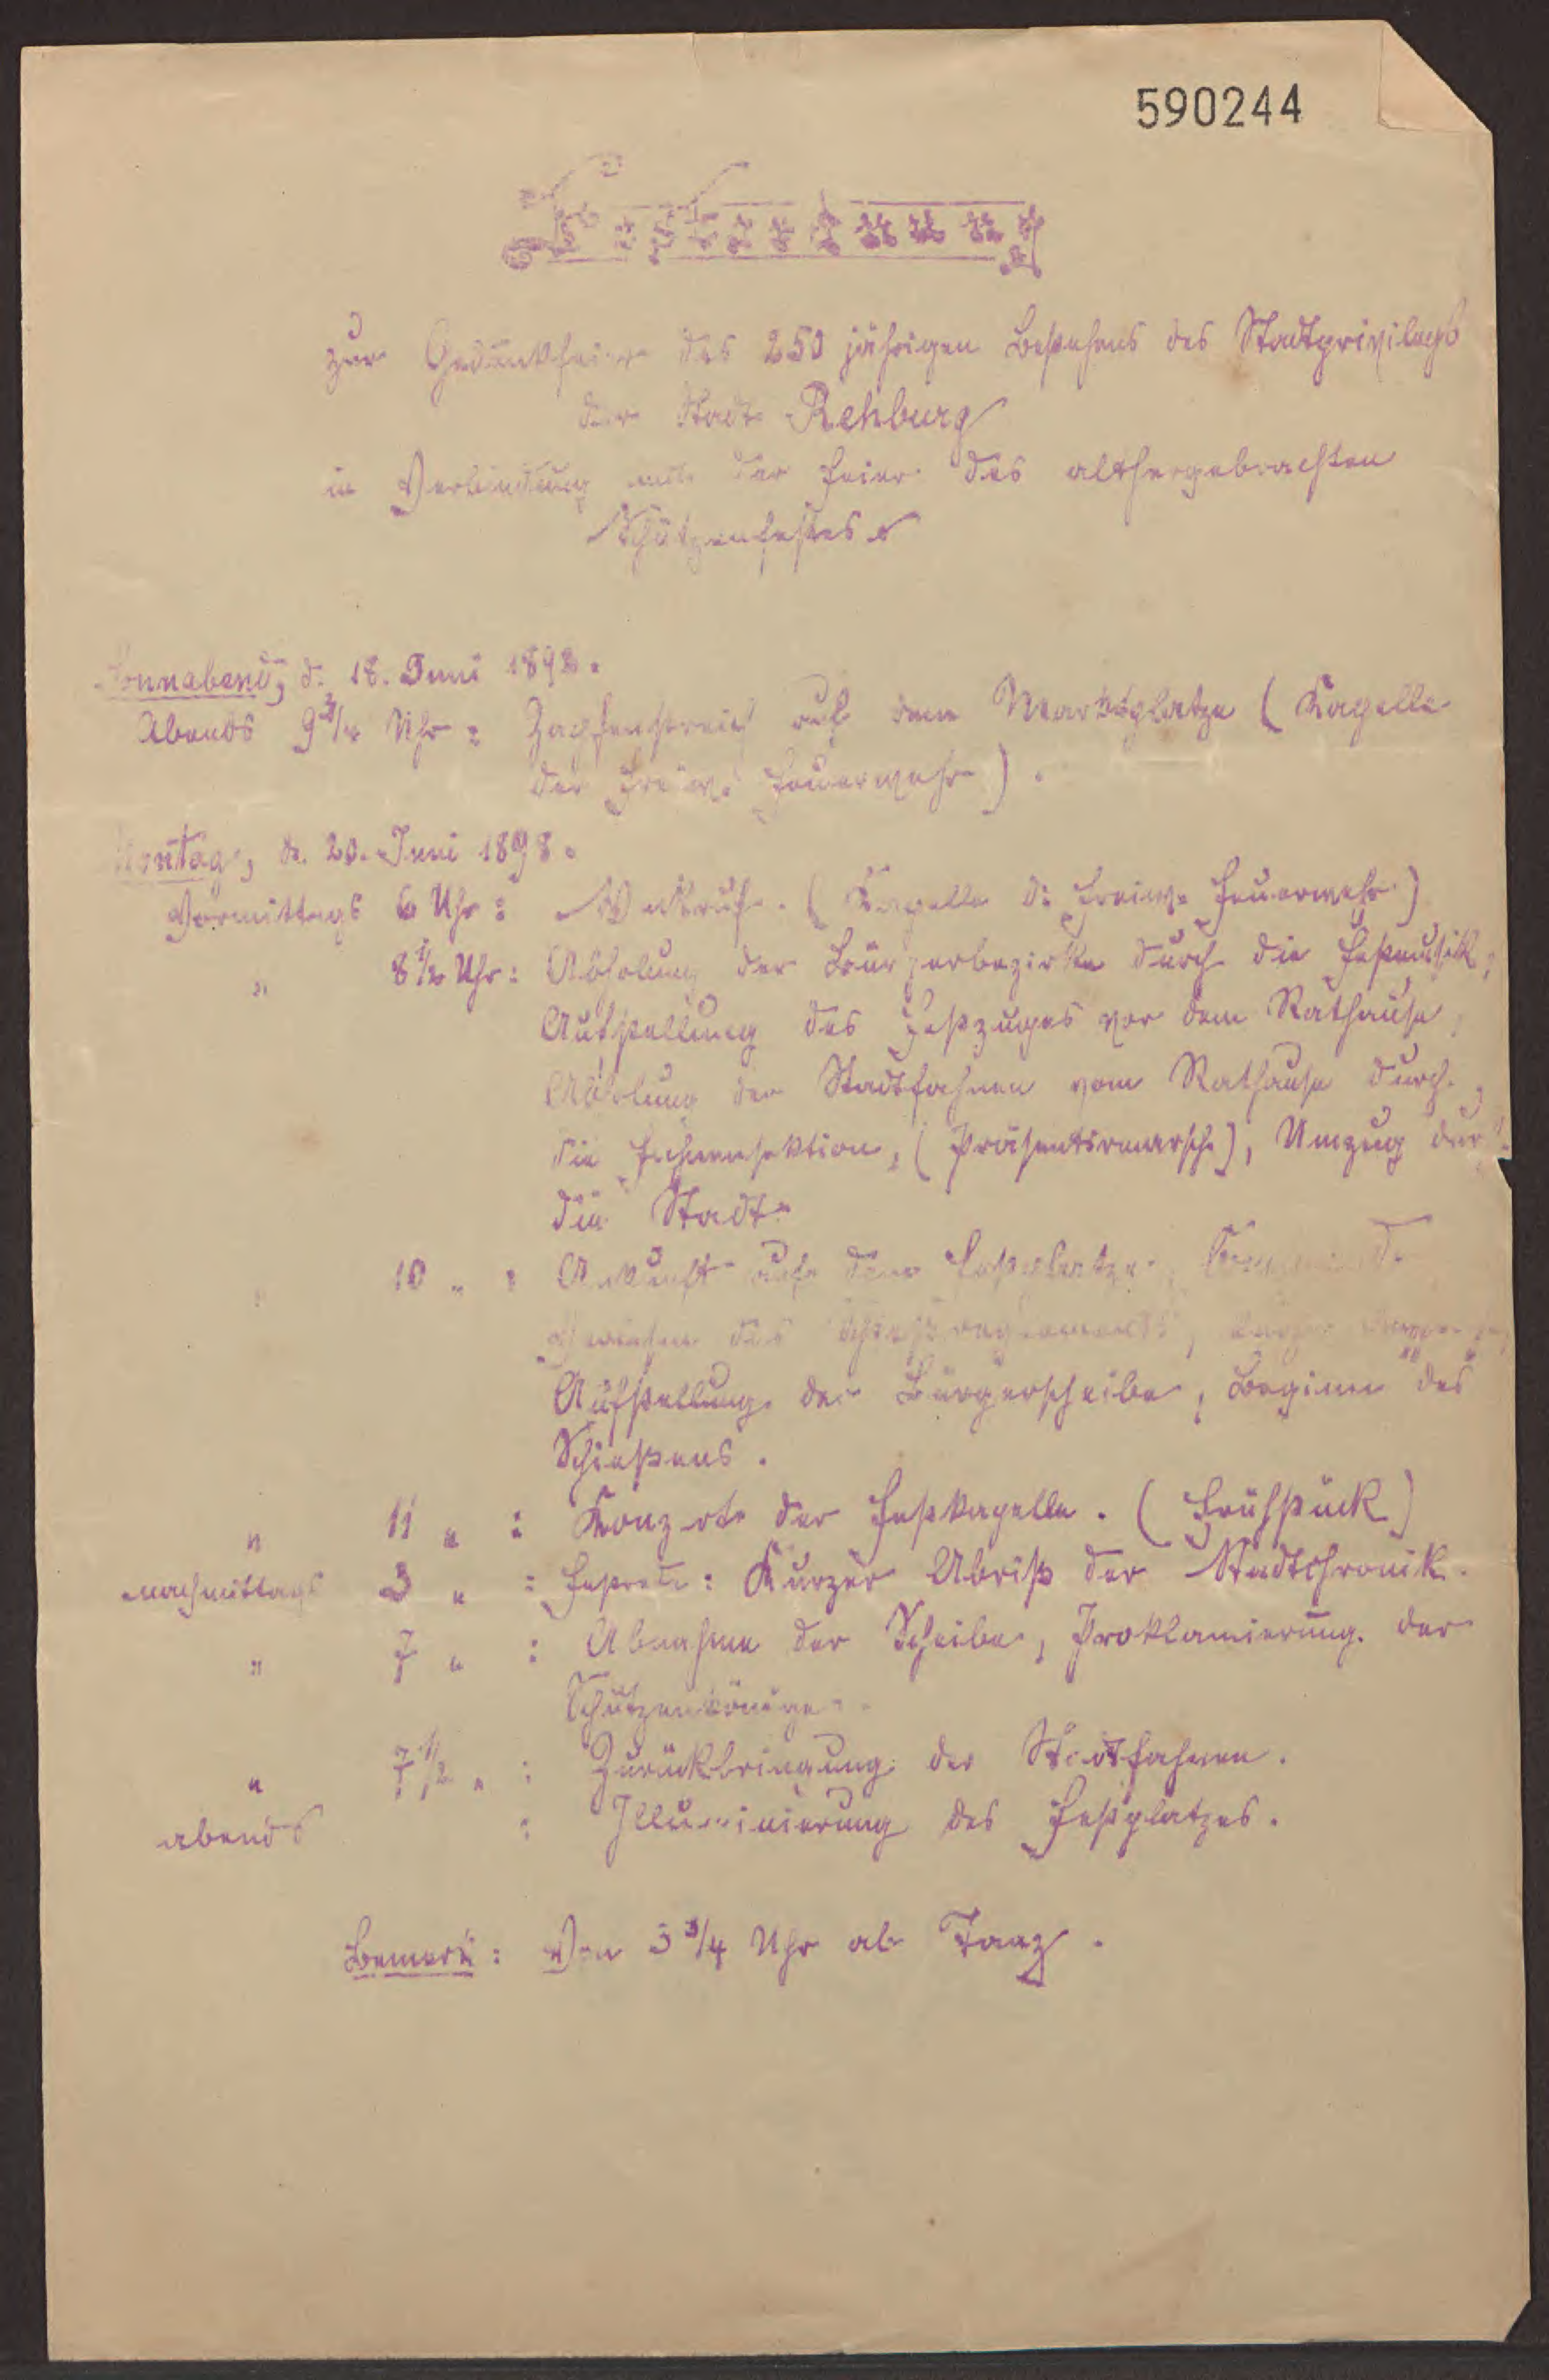 590244
zur Gedenkfeier des 250 jährigen Bestehens des Stadtprivilegs
der Stadt Rehburg
in Verbindung mit der Feier des althergebrachten
Schützenfestes.
Sonnabend, d. 18. Juni 1898.
Abends 9 3/4 Uhr: Zapfenstreich auf dem Marktplatze (Kapelle
der Freiw. Feuerwehr).
Montag, d. 20. Juni 1898.
Vormittags 6 Uhr: Weckruf. (Kapelle d. Freiw. Feuerwehr)
" 8 1/2 Uhr: Abholung der Bürgerbezirke durch die Festmusik,
Aufstellung des Festzuges vor dem Rathause,
Abholung der Stadtfahnen vom Rathause durch
die Fahnensektion, (Präsentirmarsch), Umzug durch
die Stadt.
" 10 " : Ankunft auf dem Festplatze,
Verlesen des Schießreglements,
Aufstellung der Bürgerscheibe, Beginn des
Schießens.
" 11 " : Konzert der Festkapelle. (Frühstück)
nachmittags 3 " : Festrede: Kurzer Abriß der Stadtchronik.
" 7 " : Abnahme der Scheibe, Proklamierung der
Schützenkönige.
" 7 1/2 " : Zurückbringung der Stadtfahnen.
abends : Illuminierung des Festplatzes.
Bemerk: Von 3 3/4 Uhr ab Tanz.